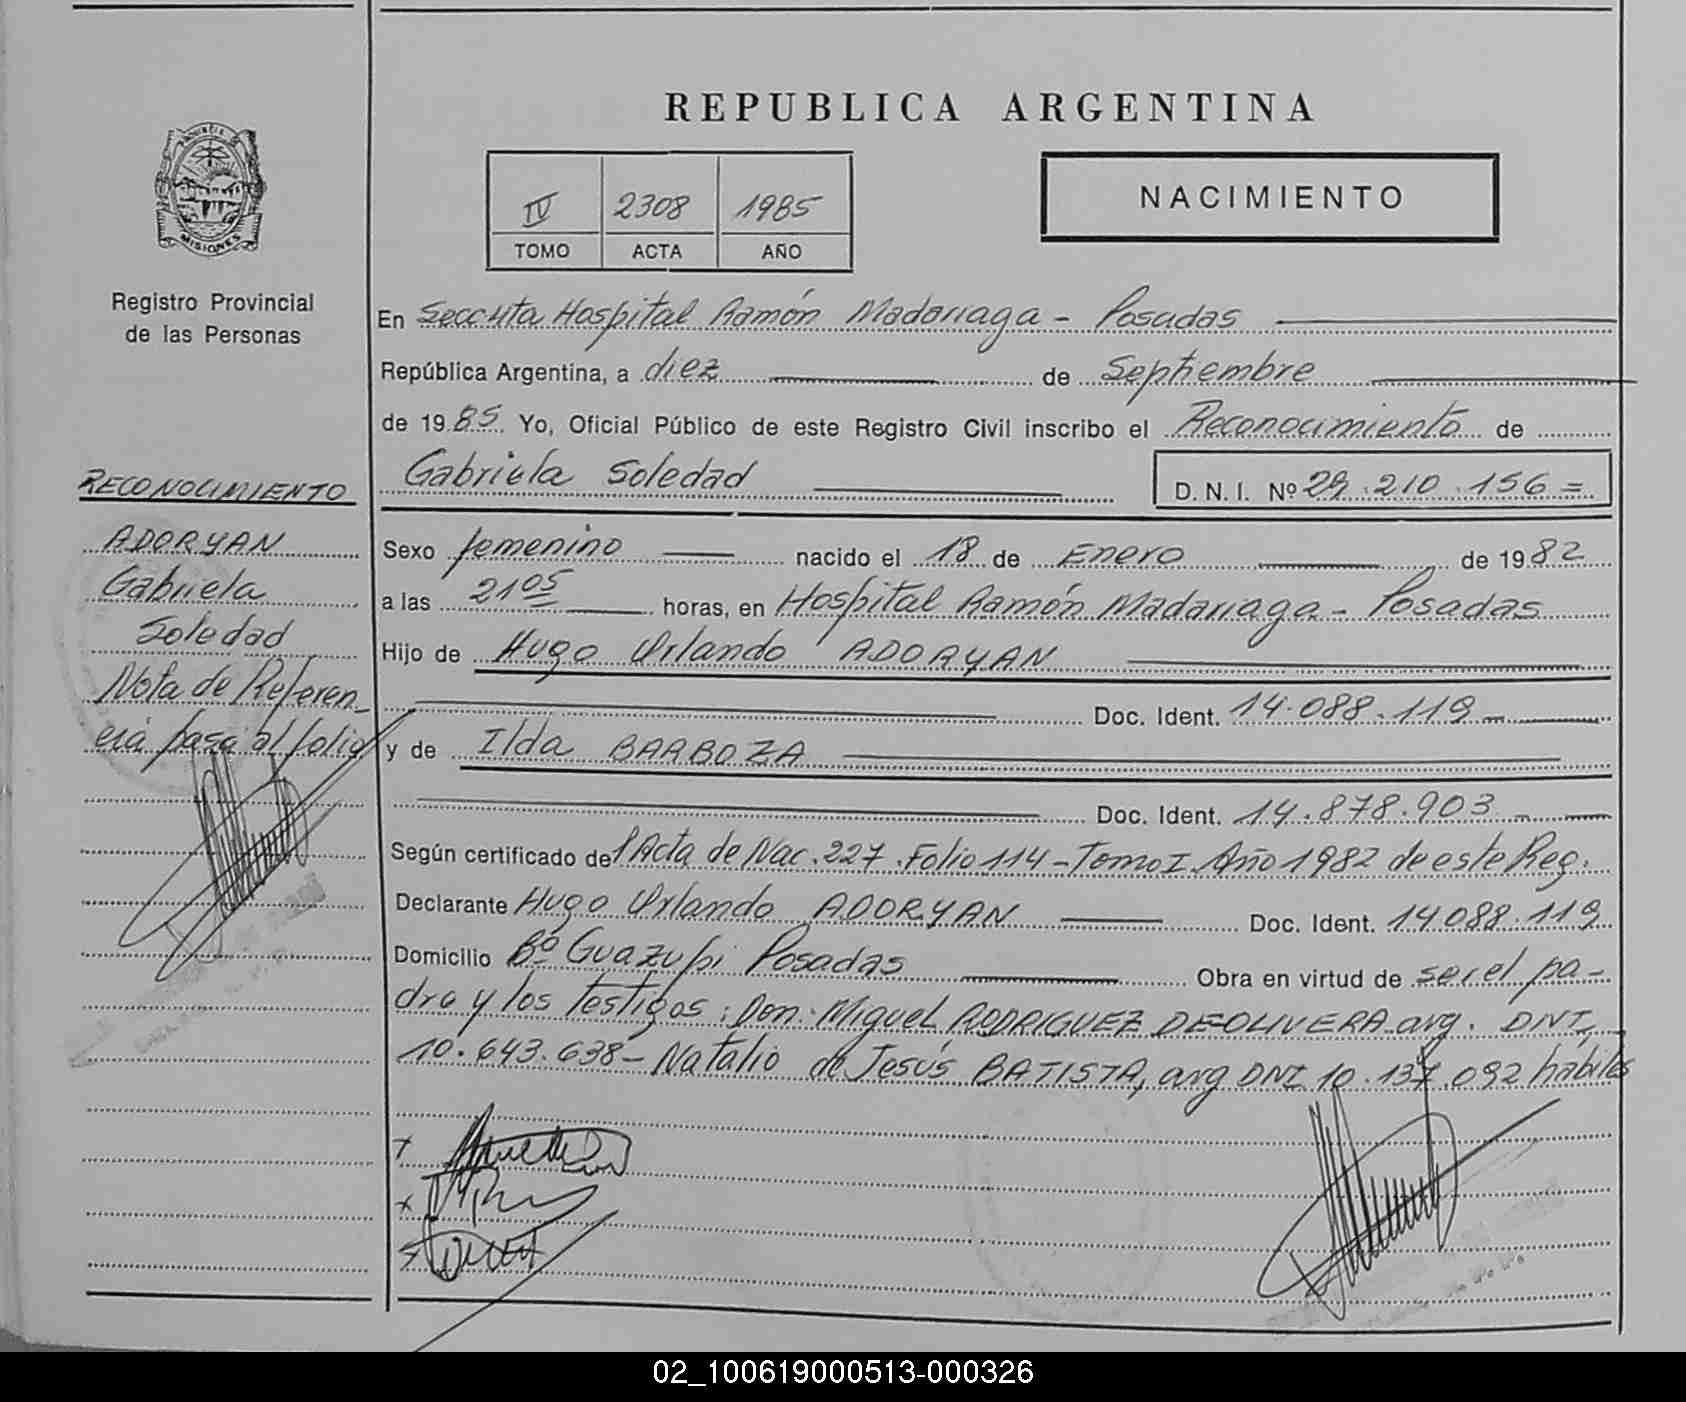 REPUBLICA ARGENTINA
PROVINCIA DE
MISIONES
Registro Provincial
de las Personas
IV 2308 1985
TOMO ACTA AÑO
NACIMIENTO
En Seccuta Hospital Ramón Madariaga - Posadas
República Argentina, a diez de Septiembre
de 1985 Yo, Oficial Público de este Registro Civil inscribo el Reconocimiento de
Gabriela Soledad D. N. I. Nº 29.210.156=
Sexo femenino nacido el 18 de Enero de 1982
a las 21 05 horas, en Hospital Ramón Madariaga - Posadas
Hijo de Hugo Orlando ADORYAN
Doc. Ident. 14.088.119
y de Ilda BARBOZA
Doc. Ident. 14.878.903
Según certificado del Acta de Nac. 227. Folio 114 - Tomo I Año 1982 de este Reg.
Declarante Hugo Orlando ADORYAN Doc. Ident. 14088.119
Domicilio Bº Guazupi Posadas Obra en virtud de ser el pa-
dre y los testigos: Don: Miguel RODRIGUEZ DE OLIVERA arg. DNI.
10.643.638 - Natalio de Jesús BATISTA, arg DNI 10.137.092 hábiles
RECONOCIMIENTO
ADORYAN
Gabriela
Soledad
Nota de Referen-
cia pasa al folio
02_100619000513-000326